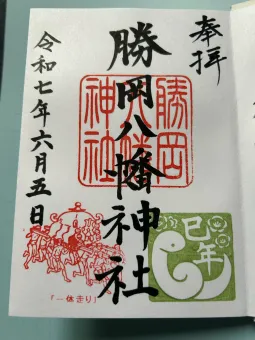 奉拝
勝岡八幡神社
勝岡
八幡
神社
令和七年六月五日
巳年
『一体走り』